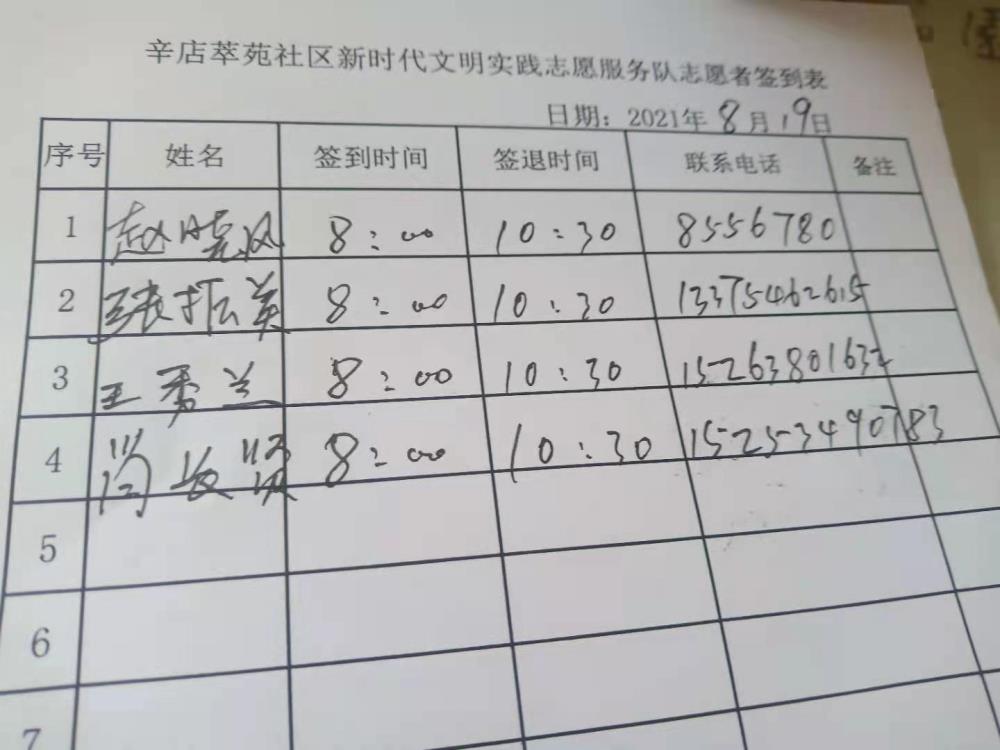 辛店萃苑社区新时代文明实践志愿服务队志愿者签到表
日期：2021年8月19日
序号 姓名 签到时间 签退时间 联系电话 备注
1 赵晓风 8:00 10:30 8556780
2 张振英 8:00 10:30 13375462615
3 王秀兰 8:00 10:30 1526380163
4 8:00 10:30 15253490783
5
6
7